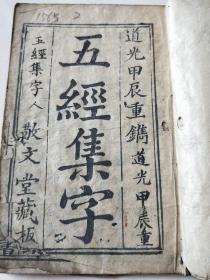 1565 2
道光甲辰重鐫
道光甲辰重
五經集字
五經集字人
敬文堂藏板